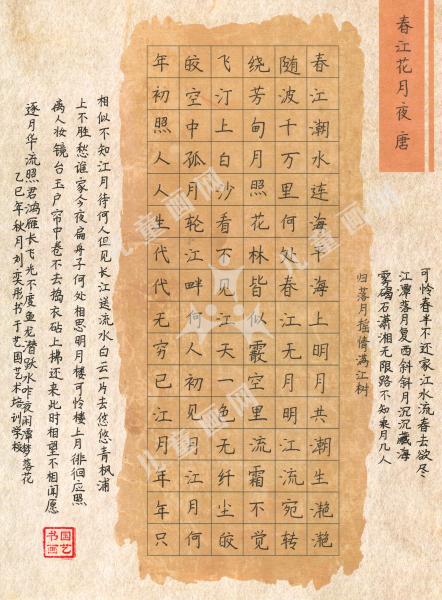 春江花月夜 唐
春江潮水连海平海上明月共潮生滟滟
随波千万里何处春江无月明江流宛转
绕芳甸月照花林皆似霰空里流霜不觉
飞汀上白沙看不见江天一色无纤尘皎
皎空中孤月轮江畔何人初见月江月何
年初照人人生代代无穷已江月年年只
相似不知江月待何人但见长江送流水白云一片去悠悠青枫浦
上不胜愁谁家今夜扁舟子何处相思明月楼可怜楼上月徘徊应照
离人妆镜台玉户帘中卷不去捣衣砧上拂还来此时相望不相闻愿
逐月华流照君鸿雁长飞光不度鱼龙潜跃水昨夜闲潭梦落花
可怜春半不还家江水流春去欲尽
江潭落月复西斜斜月沉沉藏海
雾碣石潇湘无限路不知乘月几人
归落月摇情满江树
乙巳年秋月刘奕彤书于艺园艺术培训学校
园艺
书画
儿童画网